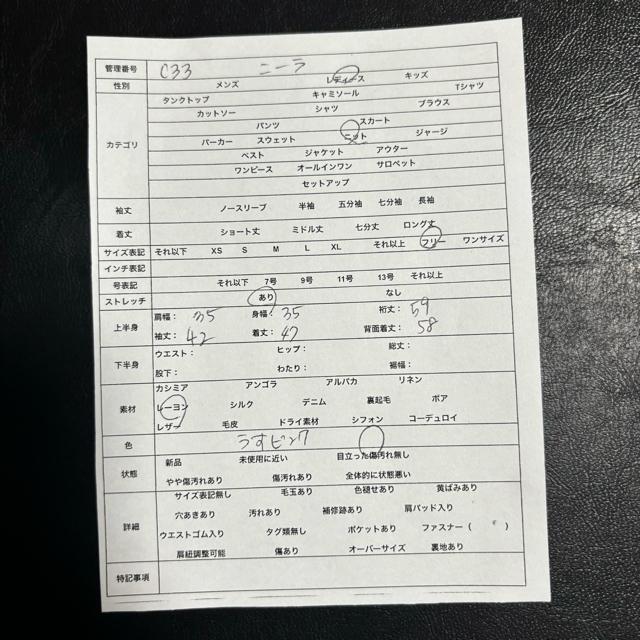 管理番号 C33 ニーラ
性別 メンズ レディース キッズ
カテゴリ タンクトップ キャミソール Tシャツ
カットソー シャツ ブラウス
パンツ スカート
パーカー スウェット ニット ジャージ
ベスト ジャケット アウター
ワンピース オールインワン サロペット
セットアップ
袖丈 ノースリーブ 半袖 五分袖 七分袖 長袖
着丈 ショート丈 ミドル丈 七分丈 ロング丈
サイズ表記 それ以下 XS S M L XL それ以上 フリー ワンサイズ
インチ表記
号表記 それ以下 7号 9号 11号 13号 それ以上
ストレッチ あり なし
上半身 肩幅: 35 身幅: 35 裄丈: 59
袖丈: 42 着丈: 47 背面着丈: 58
下半身 ウエスト: ヒップ: 総丈:
股下: わたり: 裾幅:
素材 カシミア アンゴラ アルパカ リネン
レーヨン シルク デニム 裏起毛 ボア
レザー 毛皮 ドライ素材 シフォン コーデュロイ
色 うすピンク
状態 新品 未使用に近い 目立った傷汚れ無し
やや傷汚れあり 傷汚れあり 全体的に状態悪い
詳細 サイズ表記無し 毛玉あり 色褪せあり 黄ばみあり
穴あきあり 汚れあり 補修跡あり 肩パッド入り
ウエストゴム入り タグ類無し ポケットあり ファスナー( )
肩紐調整可能 傷あり オーバーサイズ 裏地あり
特記事項